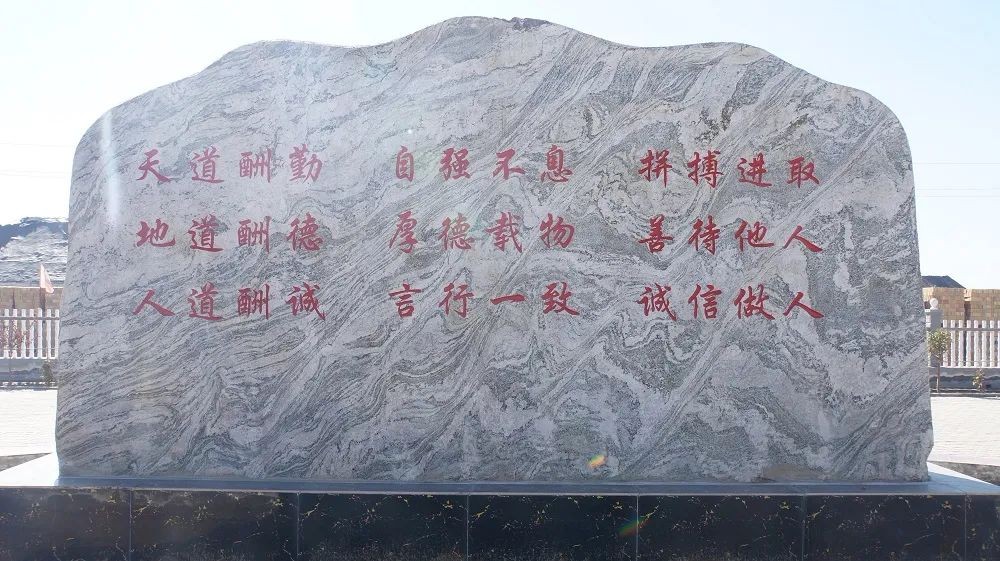 天道酬勤 自强不息 拼搏进取
地道酬德 厚德载物 善待他人
人道酬诚 言行一致 诚信做人